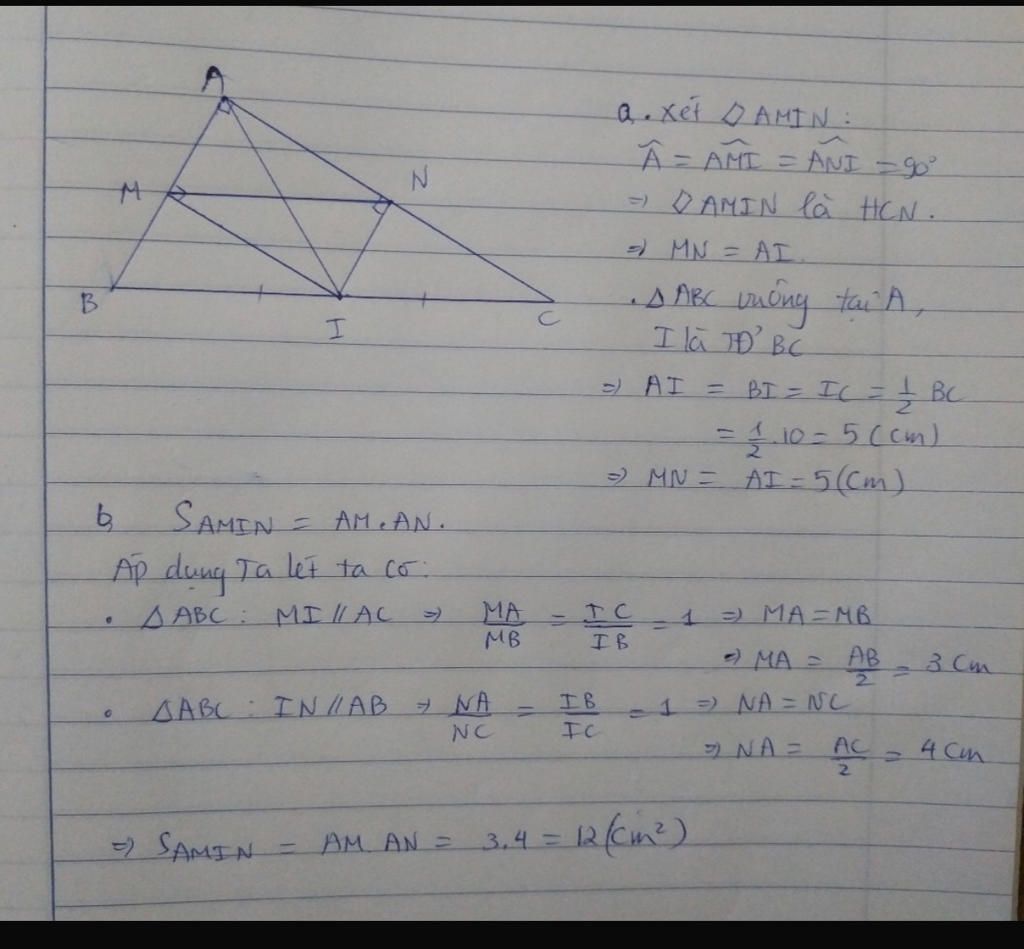 A
M
N
B
I
C
a. Xét ◊AMIN:
Â = AMÎ = ANÎ = 90°
⇒ ◊AMIN là HCN.
⇒ MN = AI.
. ΔABC vuông tại A,
I là TĐ' BC
⇒ AI = BI = IC = 1/2 BC
= 1/2 . 10 = 5 (cm)
⇒ MN = AI = 5 (cm)
b, SAMIN = AM.AN.
Áp dụng Ta lét ta có:
. ΔABC: MI // AC ⇒ MA/MB = IC/IB = 1 ⇒ MA = MB
⇒ MA = AB/2 = 3 cm
. ΔABC: IN // AB ⇒ NA/NC = IB/IC = 1 ⇒ NA = NC
⇒ NA = AC/2 = 4 cm
⇒ SAMIN = AM.AN = 3.4 = 12 (cm²)